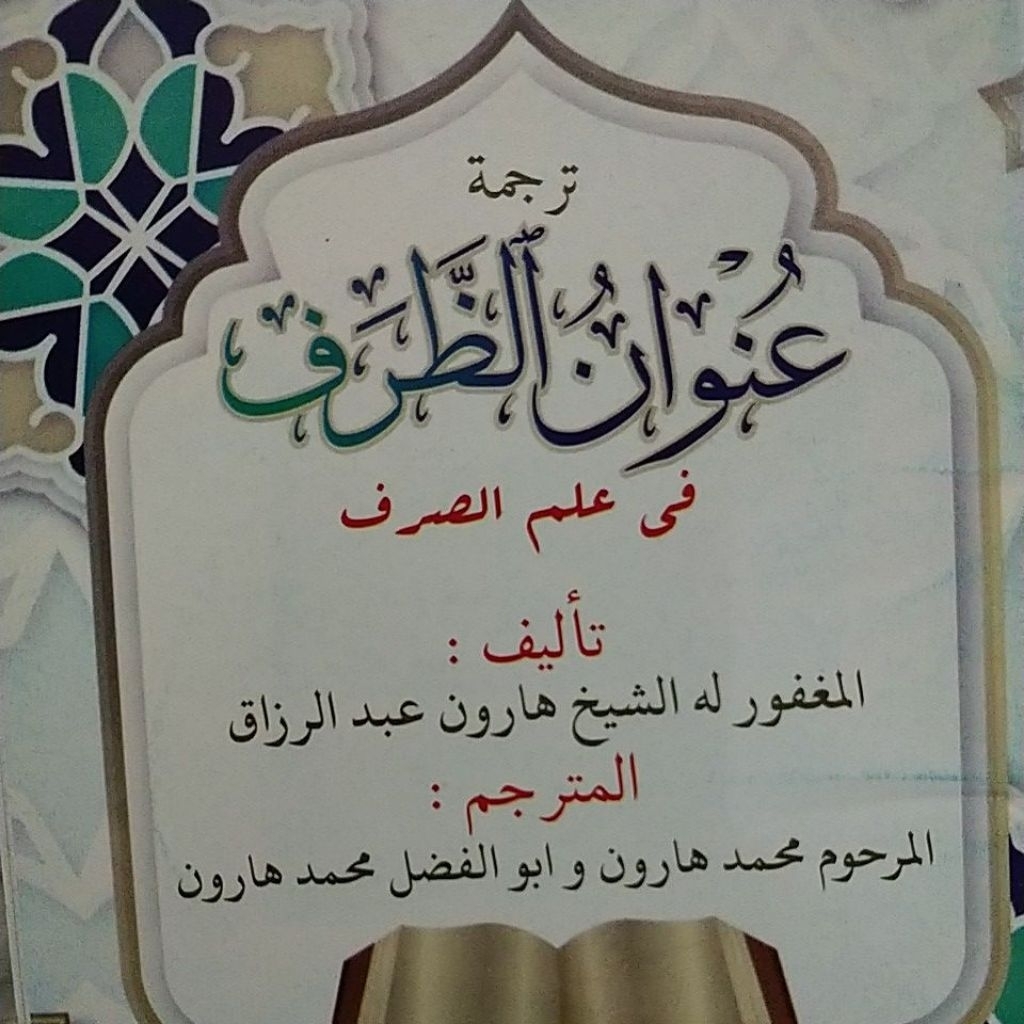 ترجمة
عُنْوَانُ ٱلظَّرَفْ
فى علم الصرف
تأليف :
المغفور له الشيخ هارون عبد الرزاق
المترجم :
المرحوم محمد هارون و ابو الفضل محمد هارون